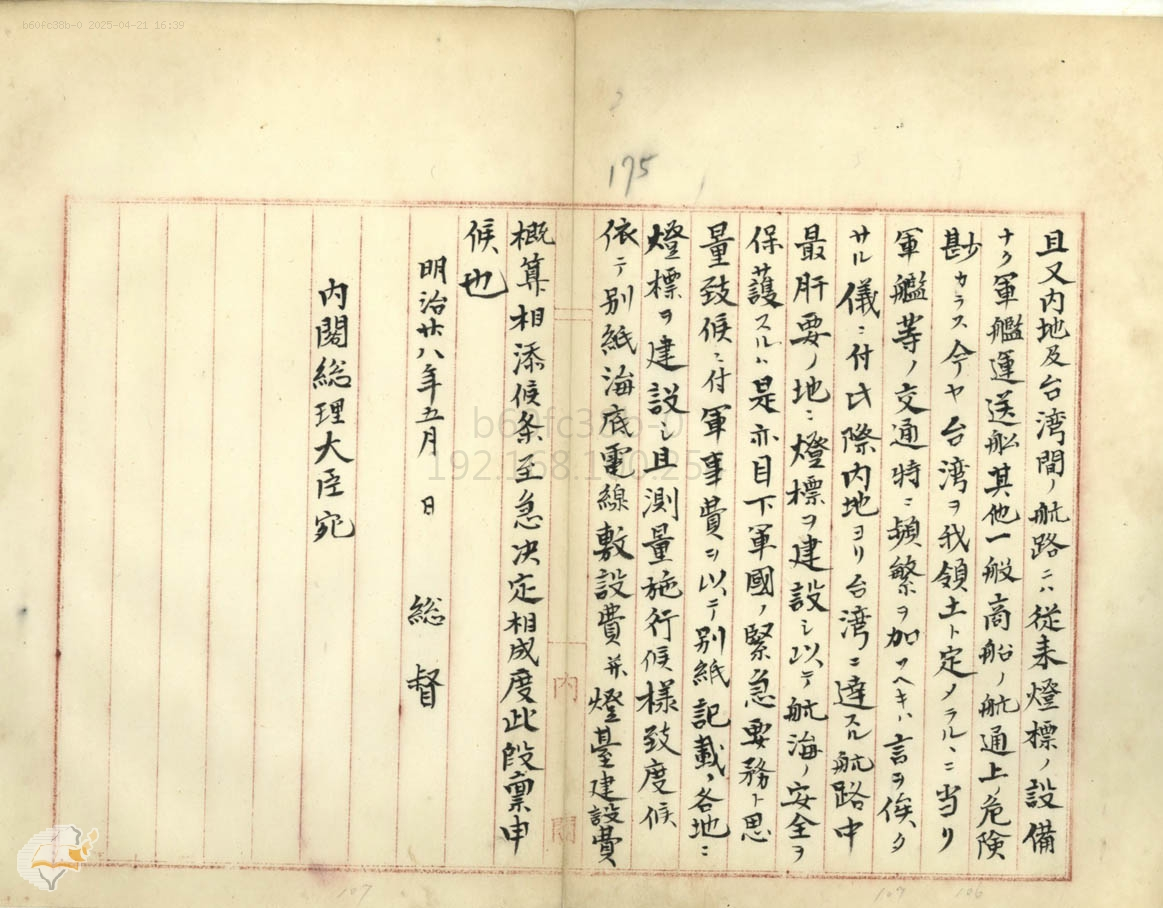 b60fc38b-0 2025-04-21 16:39
175
且又内地及台湾間ノ航路ニハ従来燈標ノ設備
ナク軍艦運送船其他一般商船ノ航通上危険
尠カラス今ヤ台湾ヲ我領土ト定メラルヽニ当リ
軍艦等ノ交通特ニ頻繁ヲ加フヘキハ言ヲ俟タ
サル儀ニ付此際内地ヨリ台湾ニ達スル航路中
最肝要ノ地ニ燈標ヲ建設シ以テ航海ノ安全ヲ
保護スルハ是亦目下軍國ノ緊急要務ト思
量致候ニ付軍事費ヲ以テ別紙記載ノ各地ニ
燈標ヲ建設シ且測量施行候様致度候
依テ別紙海底電線敷設費并燈臺建設費
概算相添候条至急决定相成度此段稟申
候也
明治廿八年五月 日
総督
内閣総理大臣宛
内閣
b60fc38b-0
107
107
106